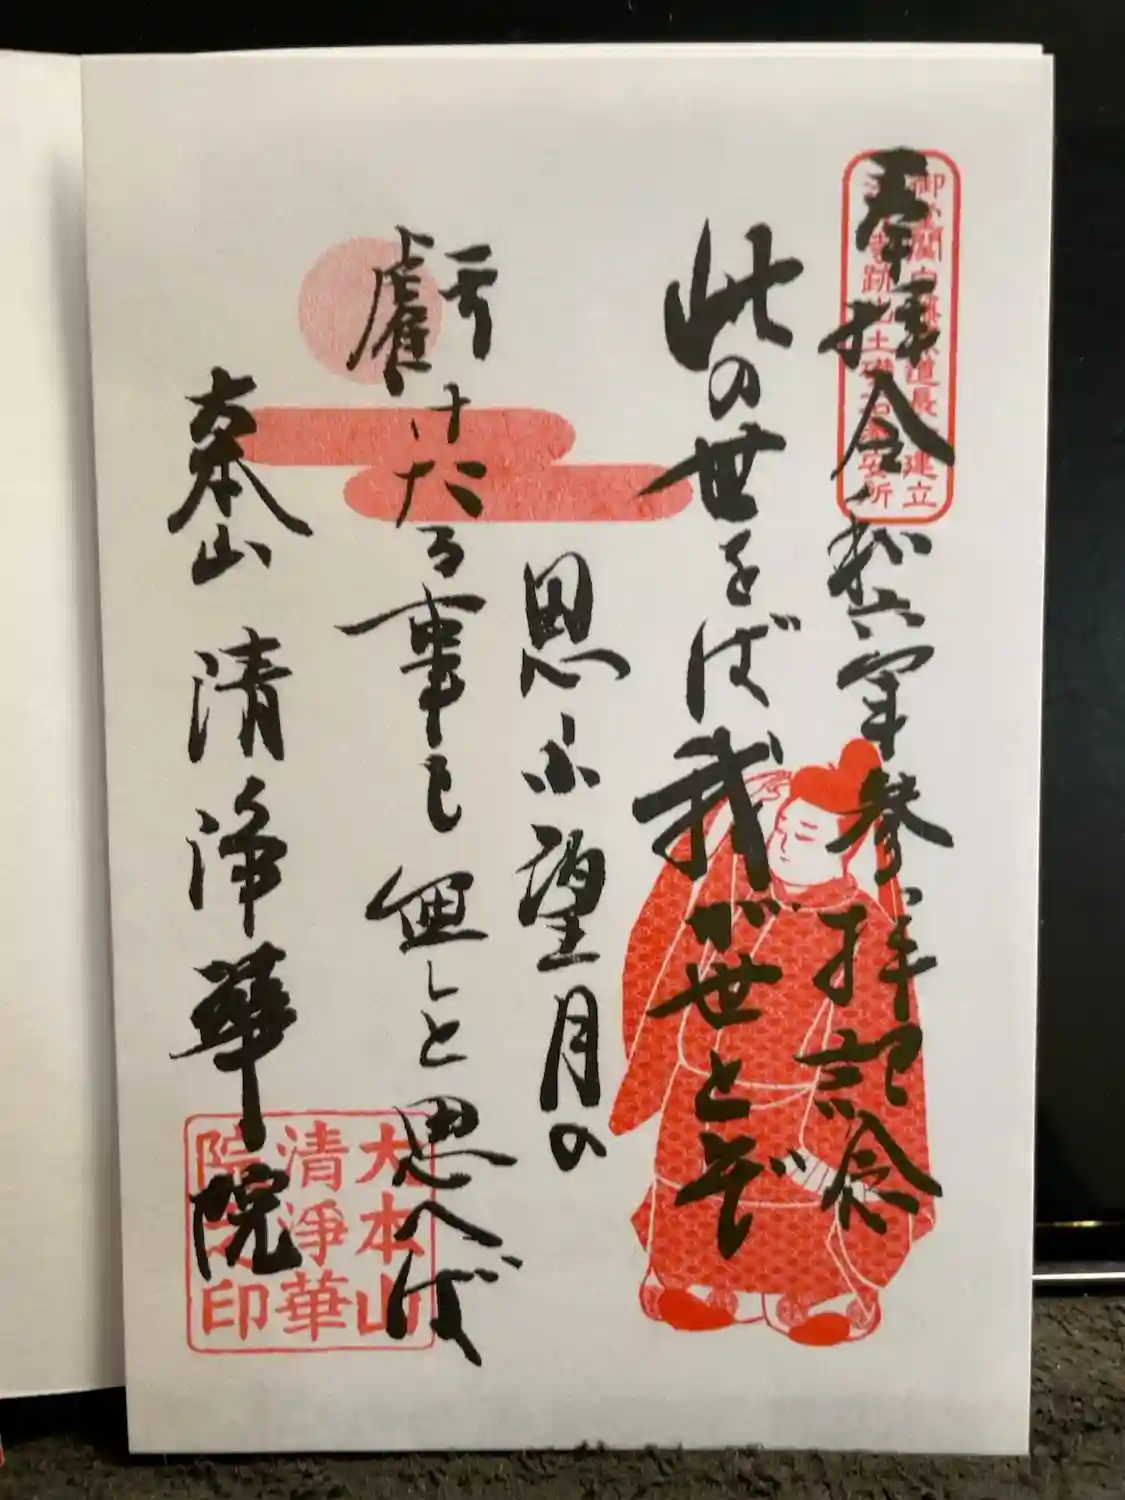 奉拝 令和六年参拝記念
此の世をば我が世とぞ
思ふ望月の
虧けたる事も無しと思へば
大本山 清浄華院
御堂関白藤原道長 建立
寺跡出土礎石 安所
大本山
清浄華
院之印